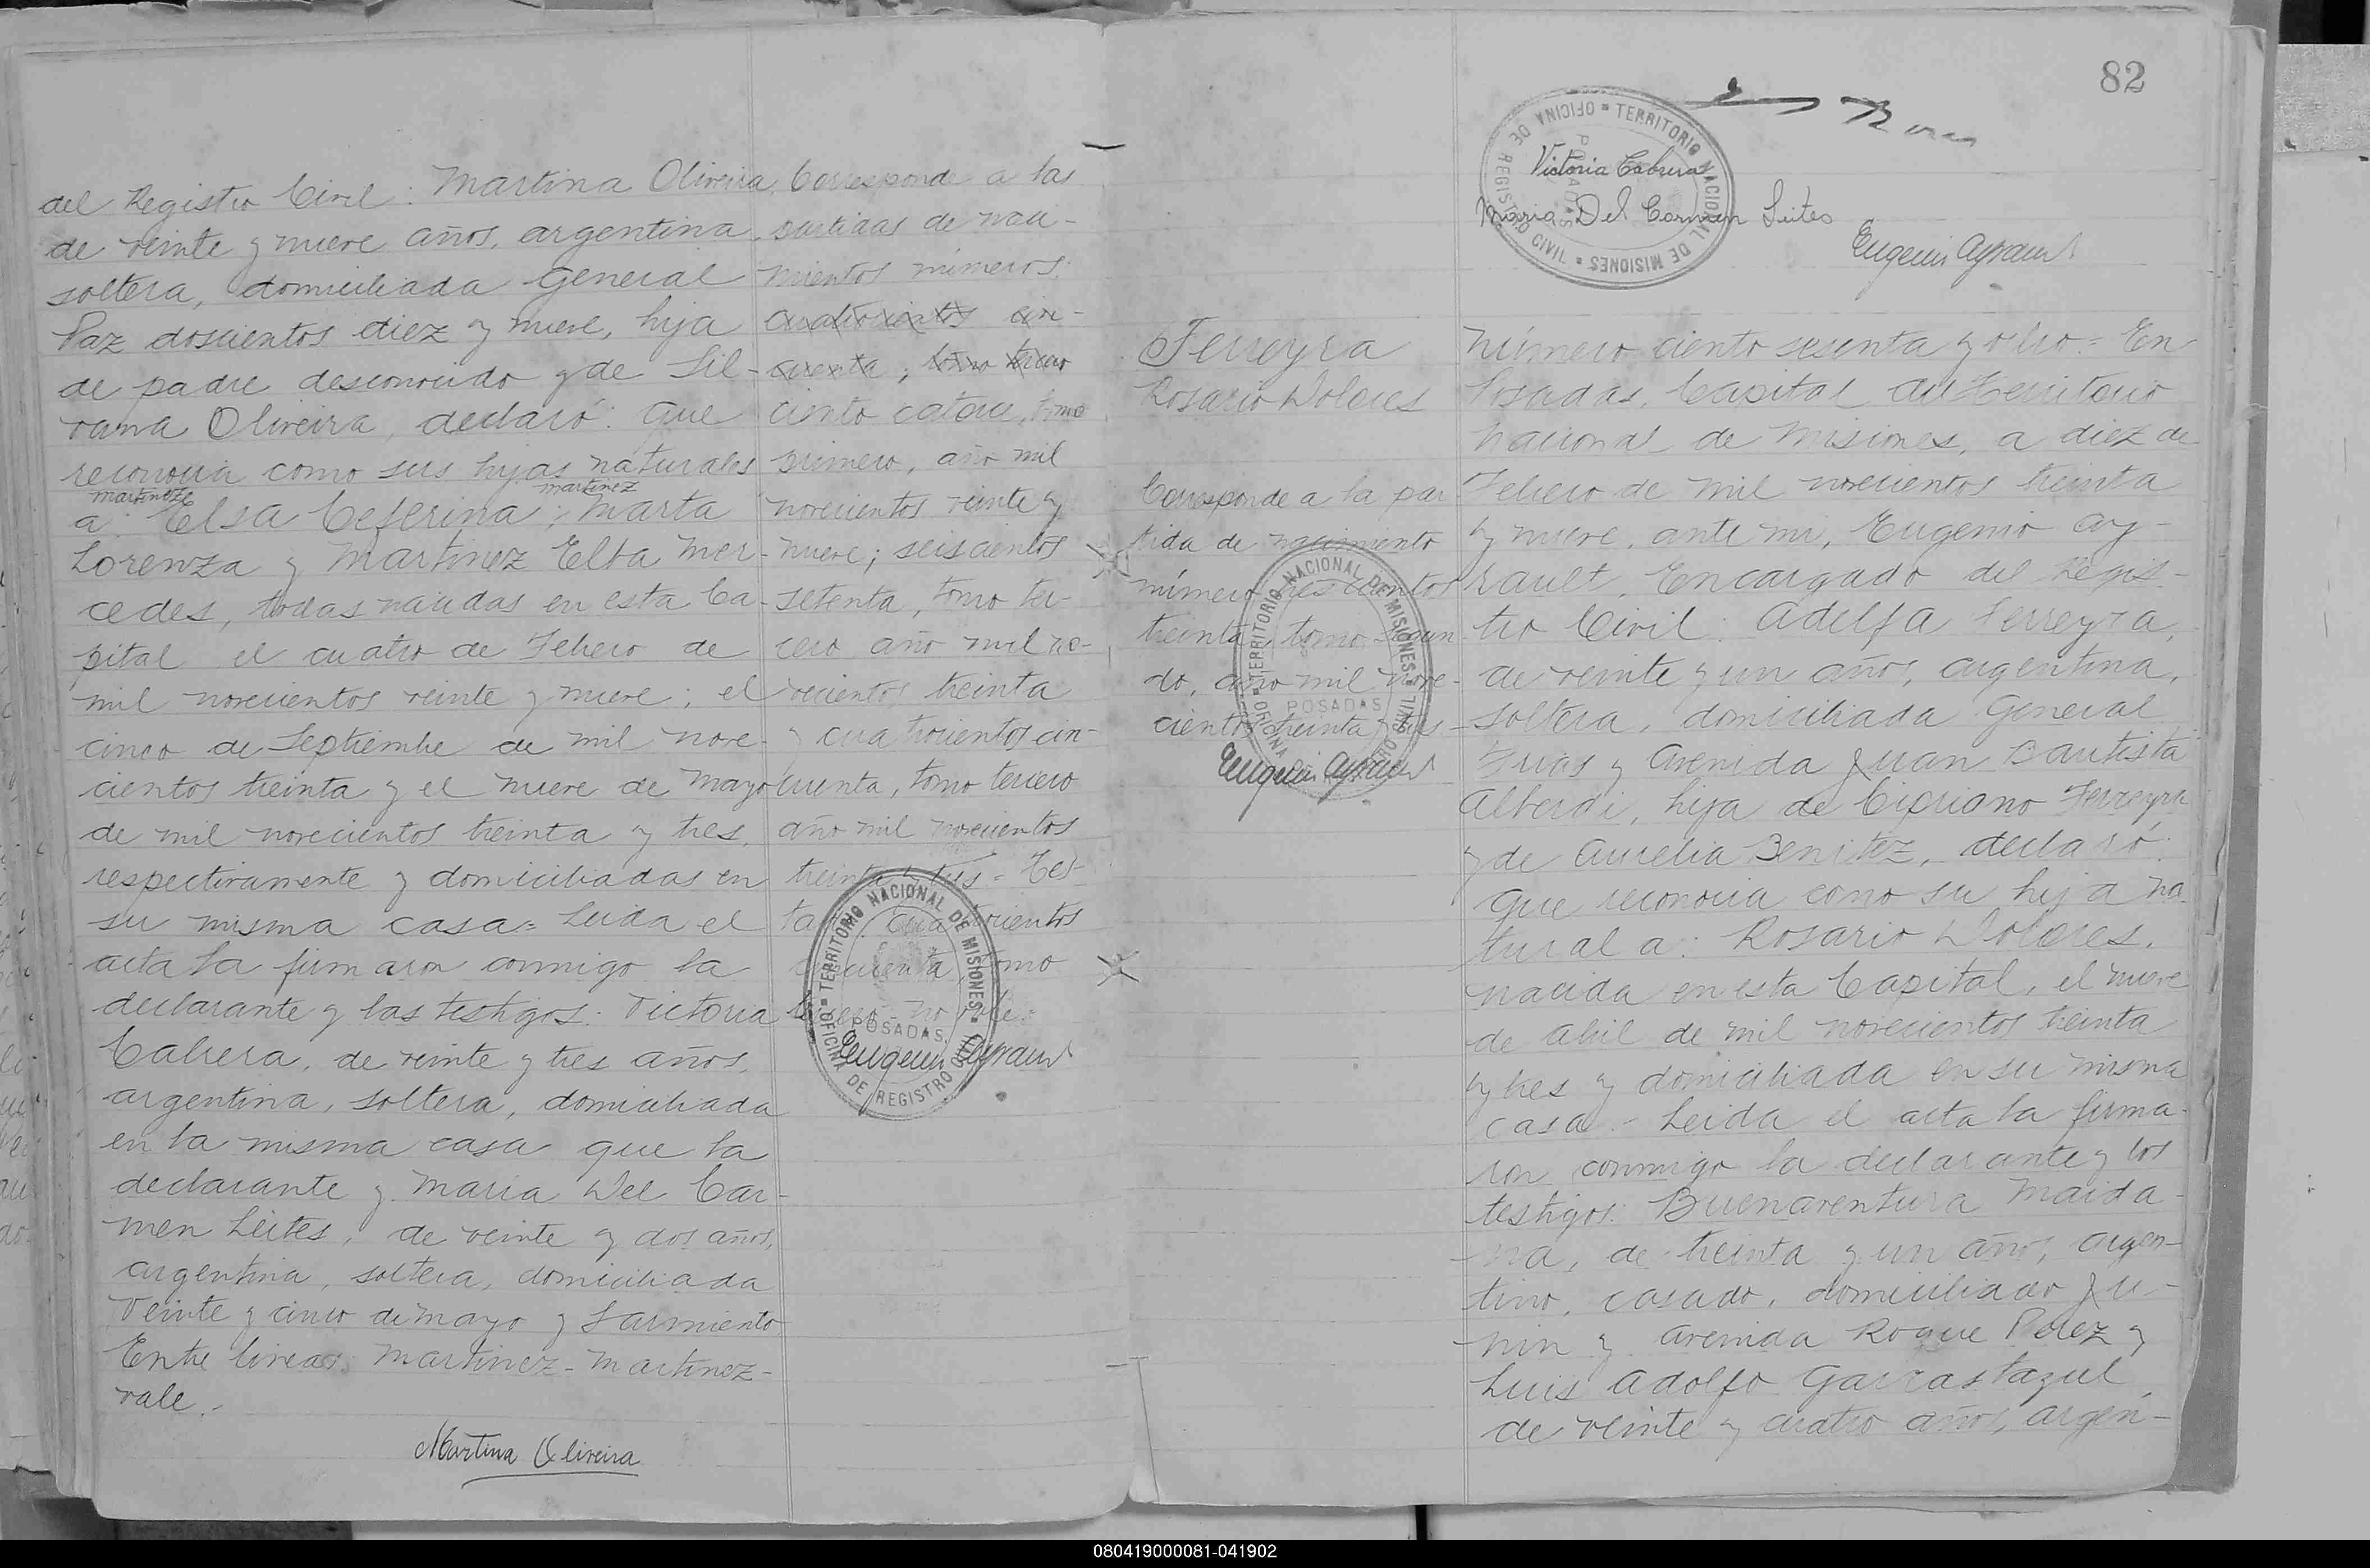 del Registro Civil: Martina Oliveira
de veinte y nueve años, argentina
soltera, domiciliada General
Paz doscientos diez y nueve, hija
de padre desconocido y de Sil-
vana Oliveira, declaró: Que
reconocia como sus hijas naturales
martinez martinez
a: Elsa Ceferina; Marta
Lorenza y Martinez Elba Mer-
cedes, todas nacidas en esta Ca-
pital el cuatro de Febrero de
mil novecientos veinte y nueve; el
cinco de Septiembre de mil nove-
cientos treinta y el nueve de Mayo
de mil novecientos treinta y tres,
respectivamente y domiciliadas en
su misma casa= Leida el
acta la firmaron conmigo la
declarante y las testigos: Victoria
Cabrera, de veinte y tres años,
argentina, soltera, domiciliada
en la misma casa que la
declarante y Maria Del Car-
men Leites, de veinte y dos años,
argentina, soltera, domiciliada
Veinte y cinco de Mayo y Sarmiento
Entre lineas: Martinez - Martinez -
vale.-
Martina Oliveira
Corresponde a las
partidas de naci-
mientos números:
cuatrocientos cin-
cuenta, tomo tercero
ciento catorce, tomo
primero, año mil
novecientos veinte y
nueve; seiscientos
setenta, tomo ter-
cero año mil no-
vecientos treinta
y cuatrocientos cin-
cuenta, tomo tercero
año mil novecientos
treinta y tres - Tes-
tado: cuatrocientos
cincuenta, tomo
tercero - no vale.
Eugenio Ayrault
TERRITORIO NACIONAL DE MISIONES
POSADAS
OFICINA DE REGISTRO CIVIL
82
TERRITORIO NACIONAL DE MISIONES
POSADAS
OFICINA DE REGISTRO CIVIL
Victoria Cabrera
Maria Del Carmen Leites
Eugenio Ayrault
Ferreyra
Rosario Dolores
Corresponde a la par
tida de nacimiento
número trescientos
treinta, tomo segun
do, año mil nove-
cientos treinta y tres
Eugenio Ayrault
TERRITORIO NACIONAL DE MISIONES
POSADAS
OFICINA DE REGISTRO CIVIL
Número ciento sesenta y ocho = En
Posadas, Capital del Territorio
Nacional de Misiones, a diez de
Febrero de mil novecientos treinta
y nueve, ante mi, Eugenio Ay-
rault, Encargado del Regis-
tro Civil: Adelfa Ferreyra,
de veinte y un años, argentina,
soltera, domiciliada General
y Avenida Juan Bautista
Alberdi, hija de Cipriano Ferreyra
y de Aurelia Benitez, declaró:
Que reconocia como su hija na
tural a: Rosario Dolores,
nacida en esta Capital, el nueve
de abril de mil novecientos treinta
y tres y domiciliada en su misma
casa - Leida el acta la firma-
ron conmigo la declarante y los
testigos: Buenaventura Maida-
na, de treinta y un años, argen-
tino, casado, domiciliado Ju-
nin y Avenida Roque Perez y
Luis Adolfo Garrastazul,
de veinte y cuatro años, argen-
080419000081-041902